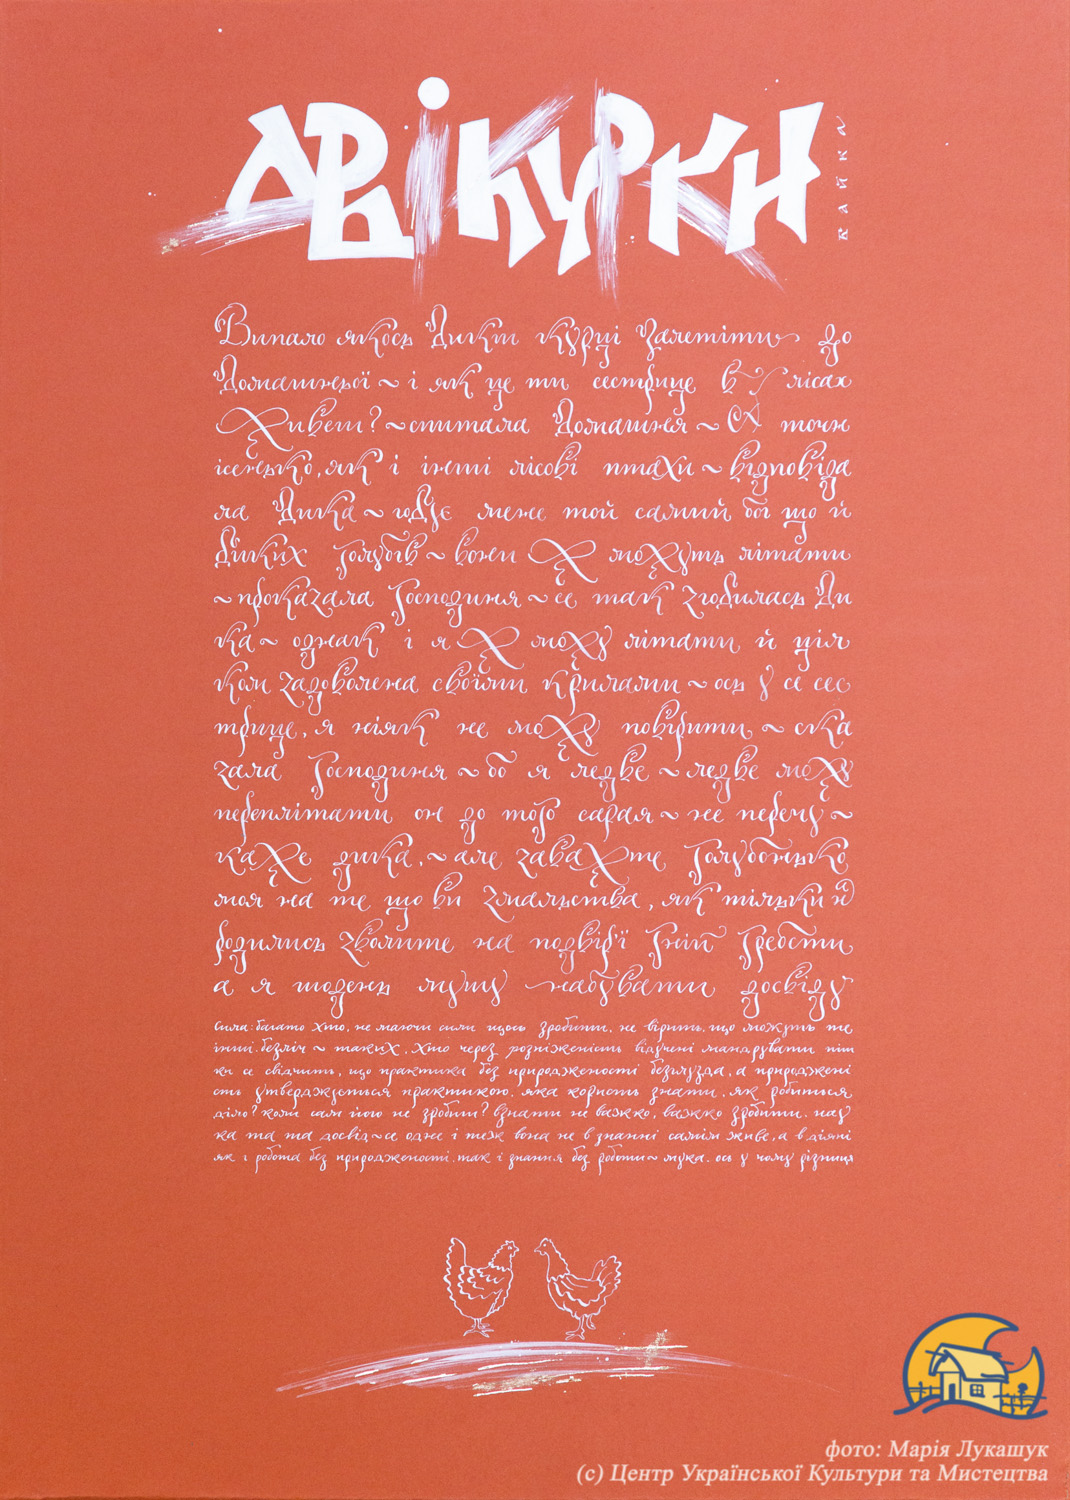 Дві курки
байка
Випало якось Дикій курці залетіти до
Домашньої ~ і як це ти сестрице в лісах
живеш? ~ спитала Домашня ~ так точні
ісенько, як і інші лісові птахи ~ відповіда
ла Дика ~ годує мене той самий бог що й
диких голубів ~ вони ж можуть літати
~ проказала Господиня ~ се так згодилась Ди
ка ~ однак і я ж можу літати й ціл
ком задоволена своїми крилами ~ ось у се сес
трице, я ніяк не можу повірити ~ ска
зала Господиня ~ бо я ледве ~ ледве можу
перелітати он до того сарая ~ не перечу ~
каже дика, ~ але зважте голубонько
моя на те що ви змальства, як тільки н
родились зволите на подвір'ї гній гребсти
а я щодень мушу набувати досвіду
Сила: багато хто, не маючи сили щось зробити, не вірить, що можуть те
інші. безліч ~ таких, хто через розніженість відучені мандрувати піш
ки се свідчить, що практика без природженості безглузда, а природжені
сть утверджується практикою. яка користь знати, як робиться
діло? коли сам його не зробиш? Взнати не важко, важко зробити. нау
ка та та досвід ~ се одне і теж вона не в знанні самім живе, а в діянні
як і робота без природженості, так і знання без роботи ~ мука. ось у чому різниця
фото: Марія Лукашук
(с) Центр Української Культури та Мистецтва